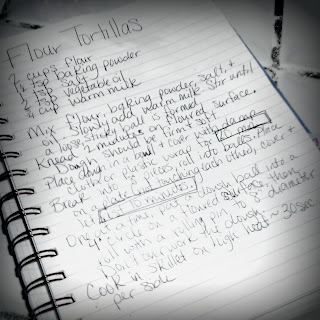 Flour Tortillas
2 cups flour
1 1/2 tsp baking powder
1 tsp salt
2 tsp vegetable oil
3/4 cup warm milk
Mix flour, baking powder, salt, +
oil. Slowly add warm milk. Stir until
a loose, sticky ball is formed.
Knead 2 minutes on floured surface.
Dough should be firm + soft.
Place dough in a bowl + cover with damp
cloth or plastic wrap for 20 min.
Break into 8 pieces, roll into balls. Place
on plate not touching each other, cover +
let sit 10 minutes.
One at a time, pat a dough ball into a
5" circle on a floured surface, then
roll with a rolling pin to 8" diameter
Don't over work the dough
Cook in skillet on high heat ~ 30 sec
per side